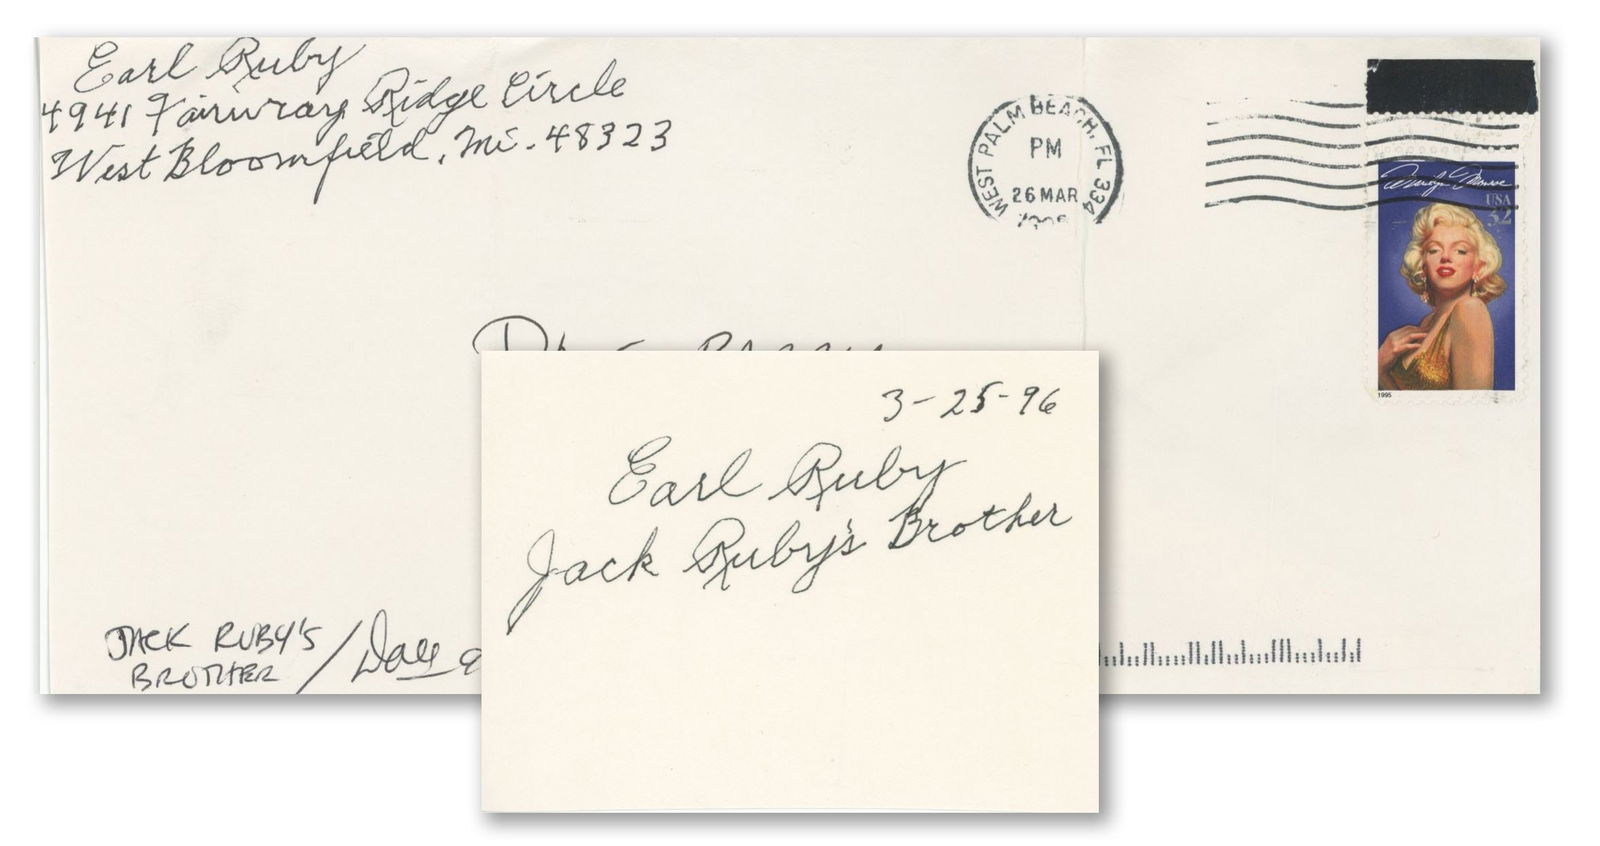 Earl Ruby
4941 Fairway Ridge Circle
West Bloomfield, Mi. 48323
WEST PALM BEACH, FL 334
PM
26 MAR
Marilyn Monroe
USA
32
1995
3-25-96
Earl Ruby
Jack Ruby's Brother
JACK RUBY'S
BROTHER /